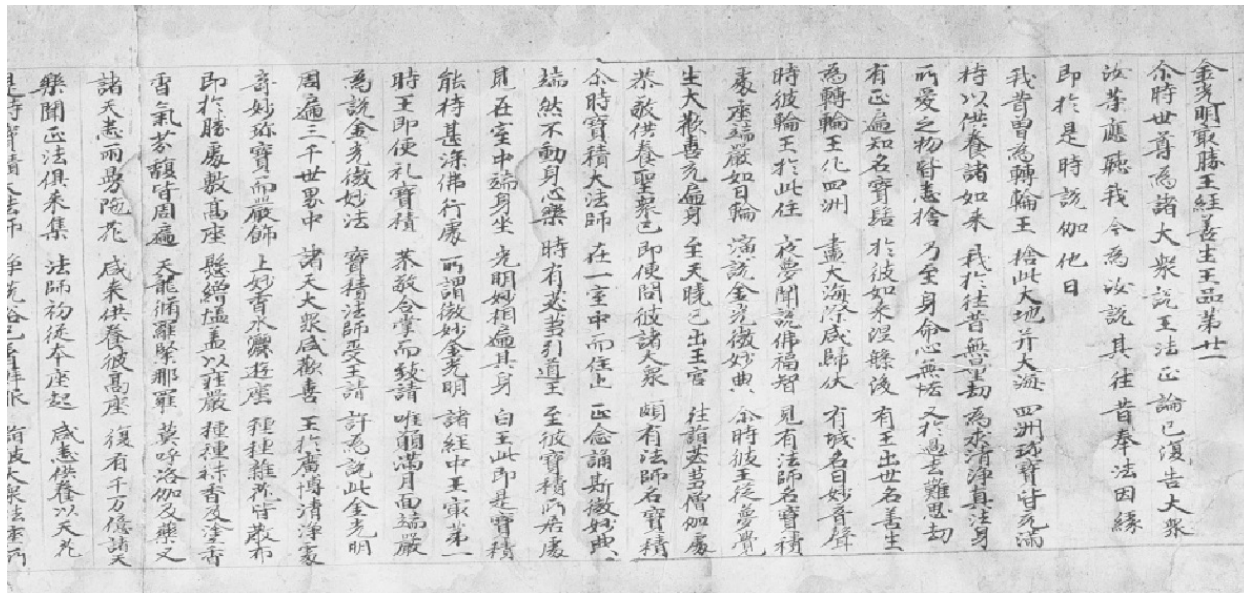 金光明最勝王經善生王品第廿一
尒時世尊為諸大衆說王法正論已復告大衆
汝等應聽我今為汝說其往昔奉法因緣
即於是時說伽他曰
我昔曾為轉輪王 捨此大地并大海 四洲珎寶皆充滿
持以供養諸如来 我於往昔無量劫 為求清淨真法身
所愛之物皆悉捨 乃至身命心無悋 又於過去難思劫
有正遍知名寶髻 於彼如来涅槃後 有王出世名善生
為轉輪王化四洲 盡大海際咸歸伏 有城名曰妙音聲
時彼輪王於此住 夜夢聞說佛福智 見有法師名寶積
處座端嚴如日輪 演說金光微妙典 尒時彼王從夢覺
生大歡喜充遍身 至天曉已出王宮 往詣苾芻僧伽處
恭敬供養聖衆已 即便問彼諸大衆 頗有法師名寶積
尒時寶積大法師 在一室中而住止 正念誦斯微妙典
端然不動身心樂 時有苾芻引道王 至彼寶積所居處
見在室中端身坐 光明妙相遍其身 白王此即是寶積
能持甚深佛行處 所謂微妙金光明 諸經中王最第一
時王即便礼寶積 恭敬合掌而致請 唯願滿月面端嚴
為說金光微妙法 寶積法師受王請 許為說此金光明
周遍三千世界中 諸天大衆咸歡喜 王於廣博清淨處
奇妙珎寶而嚴飾 上妙香水灑遊塵 種種雜花皆散布
即於勝處敷高座 懸繒幡盖以莊嚴 種種秣香及塗香
香氣芬馥皆周遍 天龍脩羅緊那羅 莫呼洛伽及藥叉
諸天悉雨曼陁花 咸来供養彼高座 復有千万億諸天
樂聞正法俱来集 法師初從本座起 咸悉供養以天花
是時寶積大法師 淨洗浴已著鮮服 詣彼大衆法座所